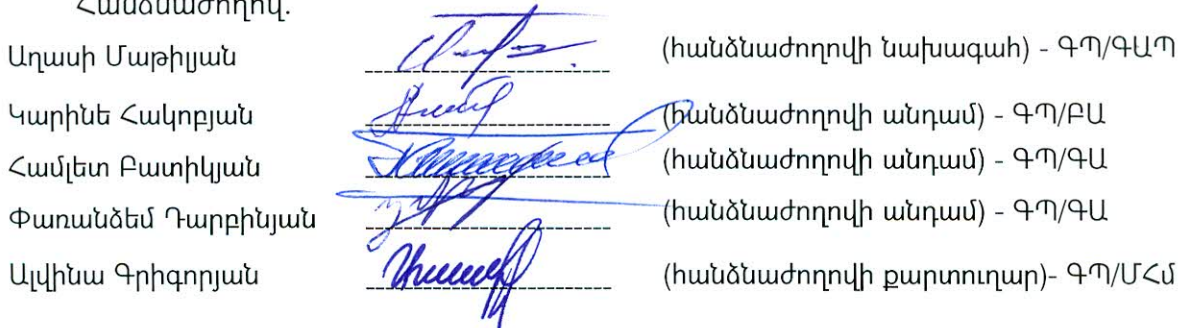 Հանձնաժողով.
Աղասի Մաթիլյան (հանձնաժողովի նախագահ) - ԳՊ/ԳԱՊ
Կարինե Հակոբյան (հանձնաժողովի անդամ) - ԳՊ/ԲԱ
Համլետ Բատիկյան (հանձնաժողովի անդամ) - ԳՊ/ԳԱ
Փառանձեմ Դարբինյան (հանձնաժողովի անդամ) - ԳՊ/ԳԱ
Ալվինա Գրիգորյան (հանձնաժողովի քարտուղար)- ԳՊ/ՄՀմ